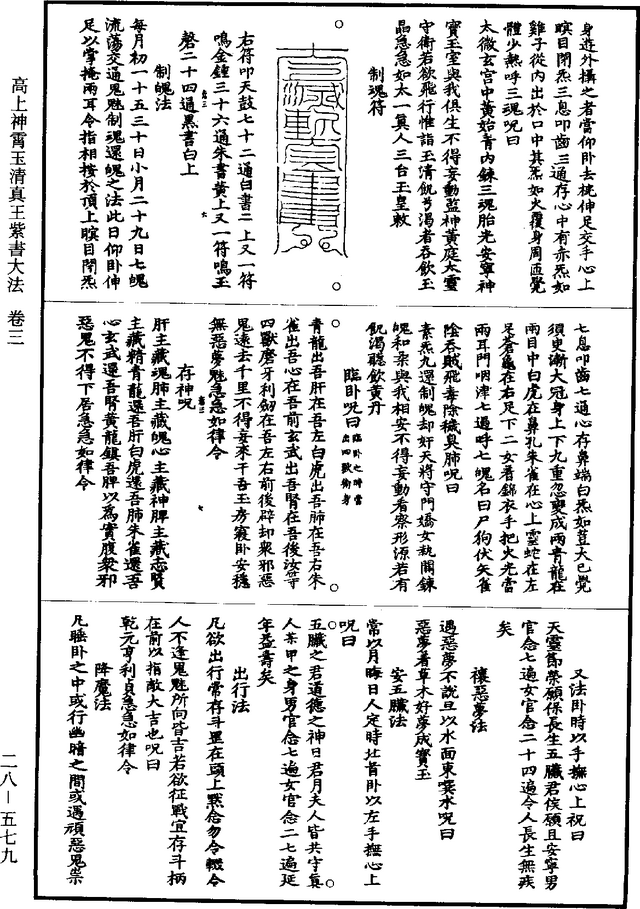 身遊外攝之者當仰卧去枕伸足交手心上
瞑目閉炁三息叩齒三通存心中有赤炁如
雞子從內出於口中其炁如火覆身周匝覺
體少熱呼三魂呪曰
太微玄宮中黃始青內鍊三魂胎光安寧神
寶玉室與我俱生不得妄動監神黃庭太靈
守衛若欲飛行惟詣玉清飢兮渴者吞飲玉
晶急急如太一真人三台玉皇敕
制魂符
右符叩天鼓七十二通白書二上又一符
鳴金鐘三十六通朱書黃上又一符鳴玉
磬二十四通黑書白上
制魄法
每月初一十五三十日小月二十九日七魄
流蕩交通鬼魅制魂還魄之法此日仰卧伸
足以掌掩兩耳令指相接於項上瞑目閉炁
七息叩齒七通心存鼻端白炁如荳大已覺
須臾漸大冠身上下九重忽變成兩青龍在
兩目中白虎在鼻孔朱雀在心上靈蛇在左
足蒼龜在右足下二女着錦衣手把火光當
兩耳門咽津七過呼七魄名曰尸狗伏矢雀
陰吞賊飛毒除穢臭肺呪曰
素炁九還制魄却奸天將守門嬌女執關鍊
魄和柔與我相安不得妄動看察形源若有
飢渴聽飲黃丹
臨卧呪曰 臨卧之時當出四獸衛身
青龍出吾肝在吾左白虎出吾肺在吾右朱
雀出吾心在吾前玄武出吾腎在吾後汝等
四獸磨牙利劒在吾左右前後辟却衆邪惡
鬼遠去千里不得妄來干吾玉房寢卧安穩
無惡夢魅急急如律令
存神呪
肝主藏魂肺主藏魄心主藏神脾主藏志腎
主藏精青龍還吾肝白虎還吾肺朱雀還吾
心玄武還吾腎黃龍鎮吾脾以爲實腹衆邪
惡鬼不得下居急急如律令
又法卧時以手撫心上祝曰
天靈節榮願保長生五臟君侯願且安寧男
官念七遍女官念二十四遍令人長生無疾
矣
禳惡夢法
遇惡夢不說旦以水面東噀水呪曰
惡夢着草木好夢成寶玉
安五臟法
常以月晦日人定時北首卧以左手撫心上
呪曰
五臟之君道德之神日君月夫人皆共守真
人某甲之身男官念七遍女官念二七遍延
年益壽矣
出行法
凡欲出行常存斗罡在頭上黙念勿令輟令
人不逢鬼魅所向皆吉若欲征戰宜存斗柄
在前以指敵大吉也呪曰
乾元亨利貞急急如律令
降魔法
凡睡卧之中或行幽暗之間或遇頑惡鬼祟
高上神霄玉清真王紫書大法 卷三
二八—五七九